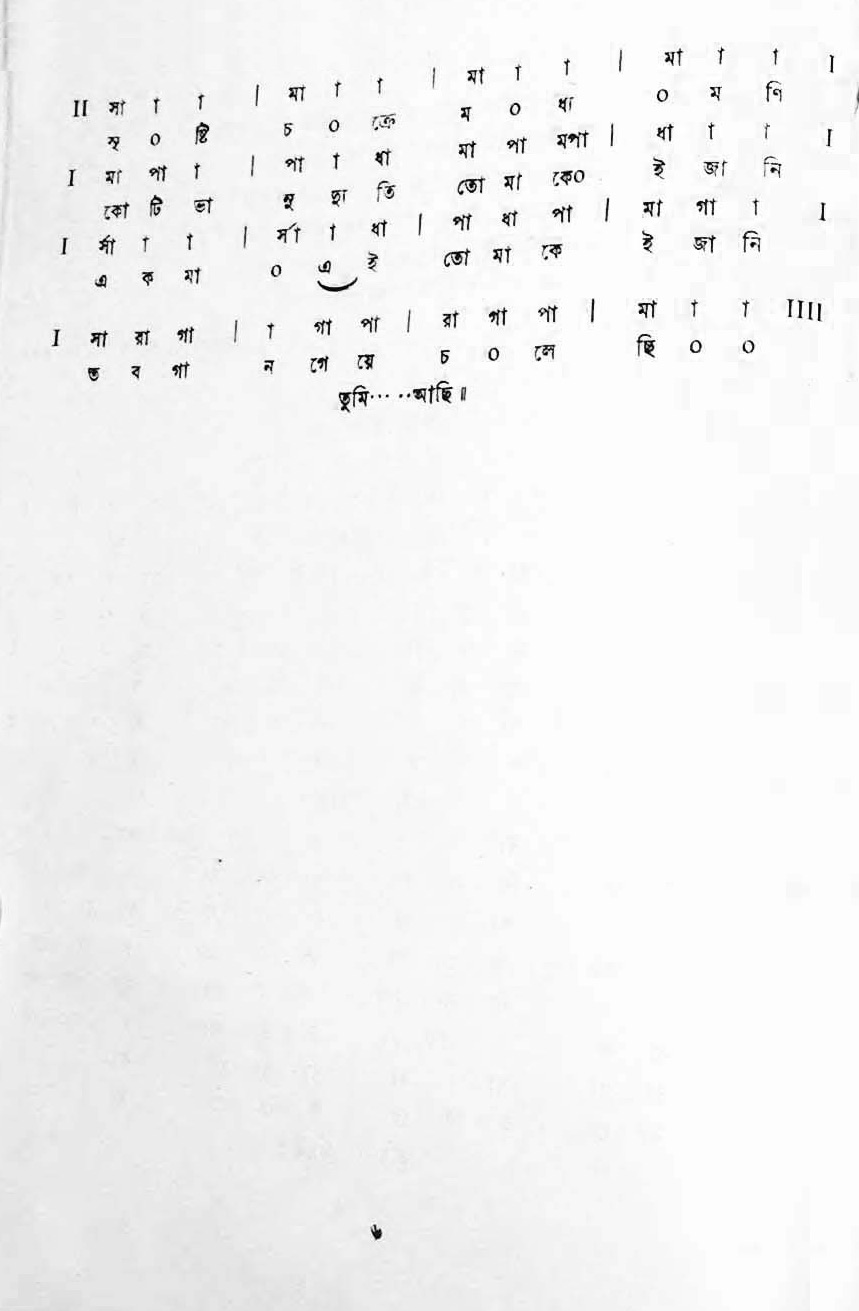 II সা া া | মা া া | মা া া | মা া া I
সৃ ০ ষ্টি চ ০ ক্রে ম ০ ধ্যা ০ ম ণি
I মা পা া | পা া ধা মা পা মপা | ধা া া I
কোটি ভা নু দ্যু তি তো মা কে০ ই জা নি
I র্সা া া | র্সা া ধা | পা ধা পা | মা গা া I
এ ক মা ০ এ ই তো মা কে ই জা নি
I সা রা গা | া গা পা | রা গা পা | মা া া IIII
ত ব গা ন গে য়ে চ ০ লে ছি ০ ০
তুমি··· ··আছি॥